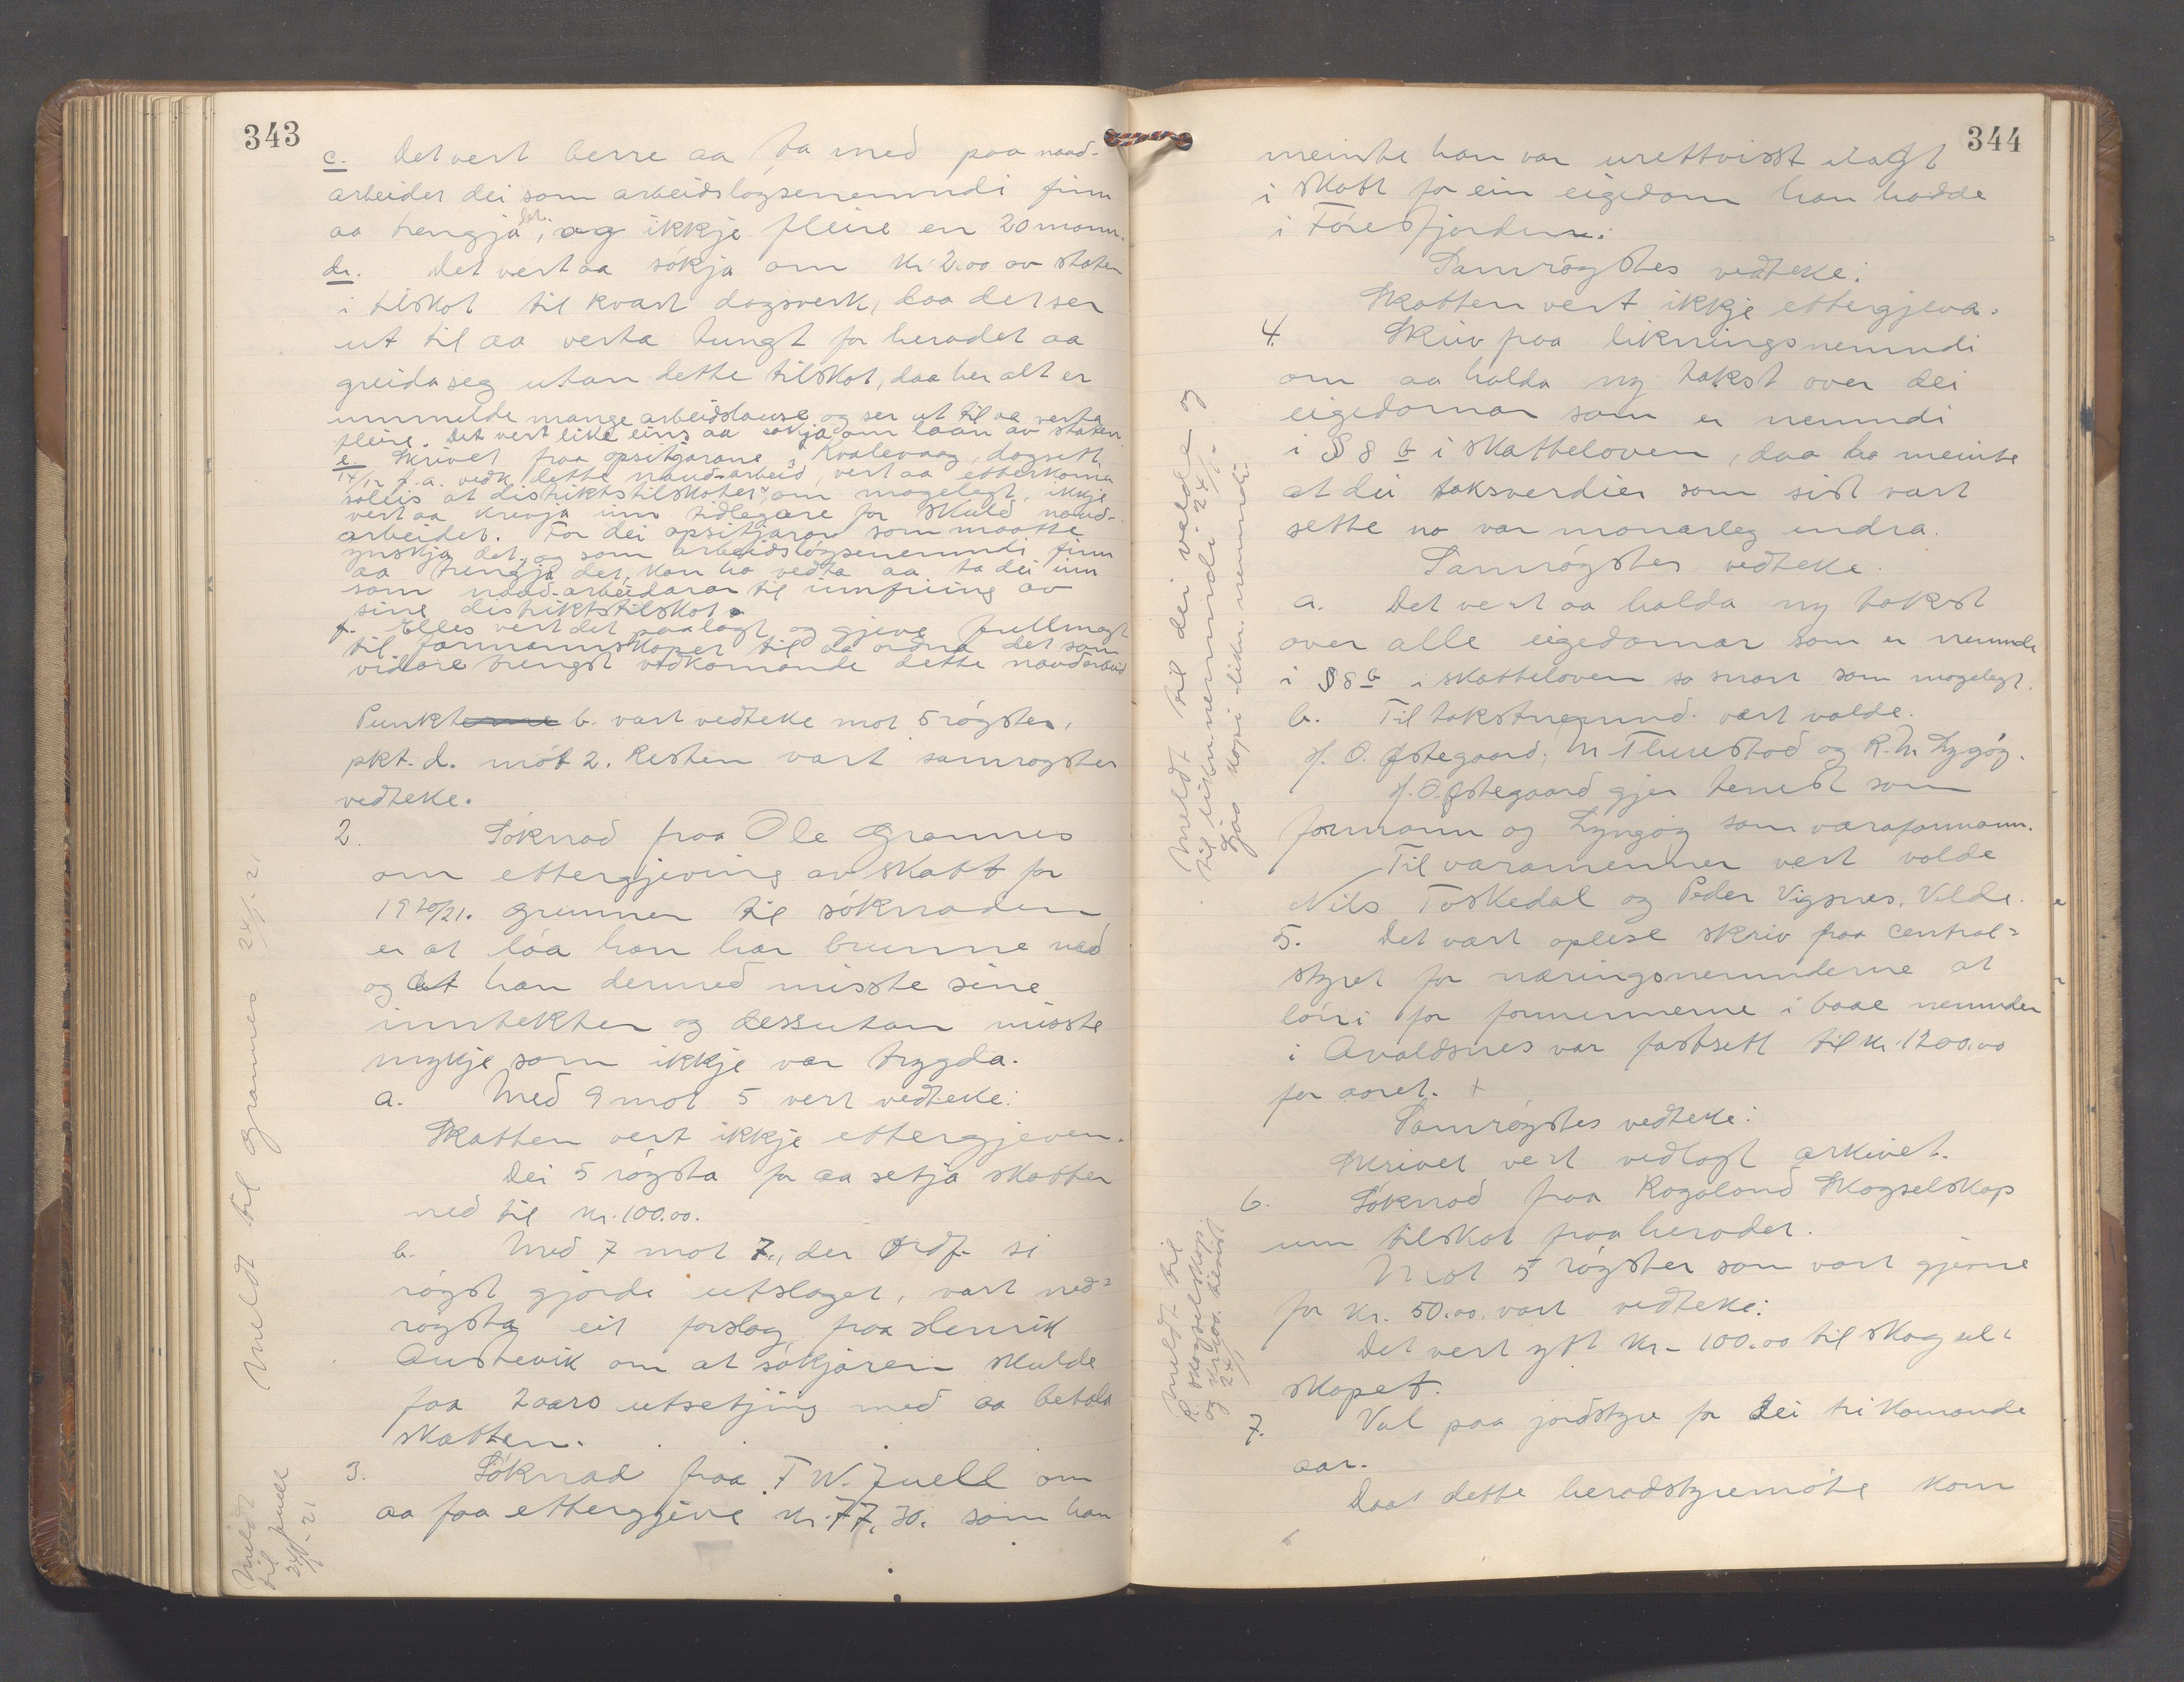 343
c. Det vert berre aa ta med paa naud-
arbeidet dei som arbeidsløysenemndi finn
aa trengja det, og ikkje fleire en 20 mann.
d. Det vert aa søkja om kr. 2.00 av staten
i tilskot til kvart dagsverk, daa det ser
ut til aa verta tungt for heradet aa
greida seg utan dette tilskot, daa her alt er
ummelde mange arbeidslause og ser ut til aa verta
fleire. Det vert like eins aa søkja om laan av staten.
e. Skrivet fraa opsitjarane i Kvalevaag, dagsett
14/12 f.a. vedk. dette naud-arbeid, vert aa etterkoma
soleis at distriktstilskotet, om mogelegt, ikkje
vert aa krevja inn tidlegare for skuld naud-
arbeidet. For dei opsitjarar som maatte
ynskja det, og som arbeidsløysenemndi finn
aa trengja det, kan ho vedta aa ta dei inn
som naud-arbeidarar til innfriing av
sine distriktstilskot.
f. Elles vert det paalagt og gjeve fullmagt
til formannskapet til aa ordna det som
vidare trengst vedkomande dette naudarbeid
Punkterne b. vart vedteke mot 5 røyster,
pkt. d. mot 2. Resten vart samrøystes
vedteke.
2. Søknad fraa Ole Grannes
om ettergjeving av skatt for
1920/21. Grunnen til søknaden
er at løa han har brunne ned
og at han dermed misste sine
inntekter og dessutan misste
mykje som ikkje var trygda.
a. Med 9 mot 5 vert vedteke:
Skatten vert ikkje ettergjeven.
Dei 5 røysta for aa setja skatten
ned til kr. 100.00.
b. Med 7 mot 7, der ordf. si
røyst gjorde utslaget, vart ned-
røysta eit forslag fraa Henrik
Austevik om at søkjaren skulde
faa 2 aars utsetjing med aa betala
skatten.
3. Søknad fraa T W. Juell om
aa faa ettergjeve kr. 77.30. som han
Meldt til Grannes 24/1-21
Meldt
til Juell
24/1-21
344
meinte han var urettvisst ilagt
i skatt for ein eigedom han hadde
i Føresfjorden.
Samrøystes vedteke:
Skatten vert ikkje ettergjeva.
4. Skriv fraa likningsnemndi
om aa halda ny takst over dei
eigedomar som er nemndi
i § 8 b i skatteloven, daa ho meinte
at dei taksverdier som sist vart
sette no var monarleg endra.
Samrøystes vedteke.
a. Det vert aa halda ny takst
over alle eigedomar som er nemnde
i § 8 b i skatteloven so snart som mogelegt.
b. Til takstnemnd vart valde.
H. O. Østegaard, M Thurestad og R. M. Lygøy.
H. O. Østegaard gjer tenest som
formann og Lyngøy som varaformann.
Til varamenner vert valde
Nils Toskedal og Peder Vigsnes, Velde.
5. Det vart oplese skriv fraa central-
styret for næringsnemnderne at
løni for formennerne i baae nemnder
i Avaldsnes var fastsett til kr. 1200.00
for aaret. +
Samrøystes vedteke:
Skrivet vert vedlagt arkivet.
6. Søknad fraa Rogaland Skogselskap
um tilskot fraa heradet.
Mot 5 røyster som vart gjevne
for kr. 50.00. vart vedteke:
Det vert ytt kr. 100.00 til skogsel-
skapet.
7. Val paa jordstyre for dei tri komande
aar.
Daa dette heradstyremøte kom
Meldt til dei valde og
til likn. nemndi 24/1.
Gjaa kopi likn. nemndi.
Meldt til
R. skogselskap
og
24/1